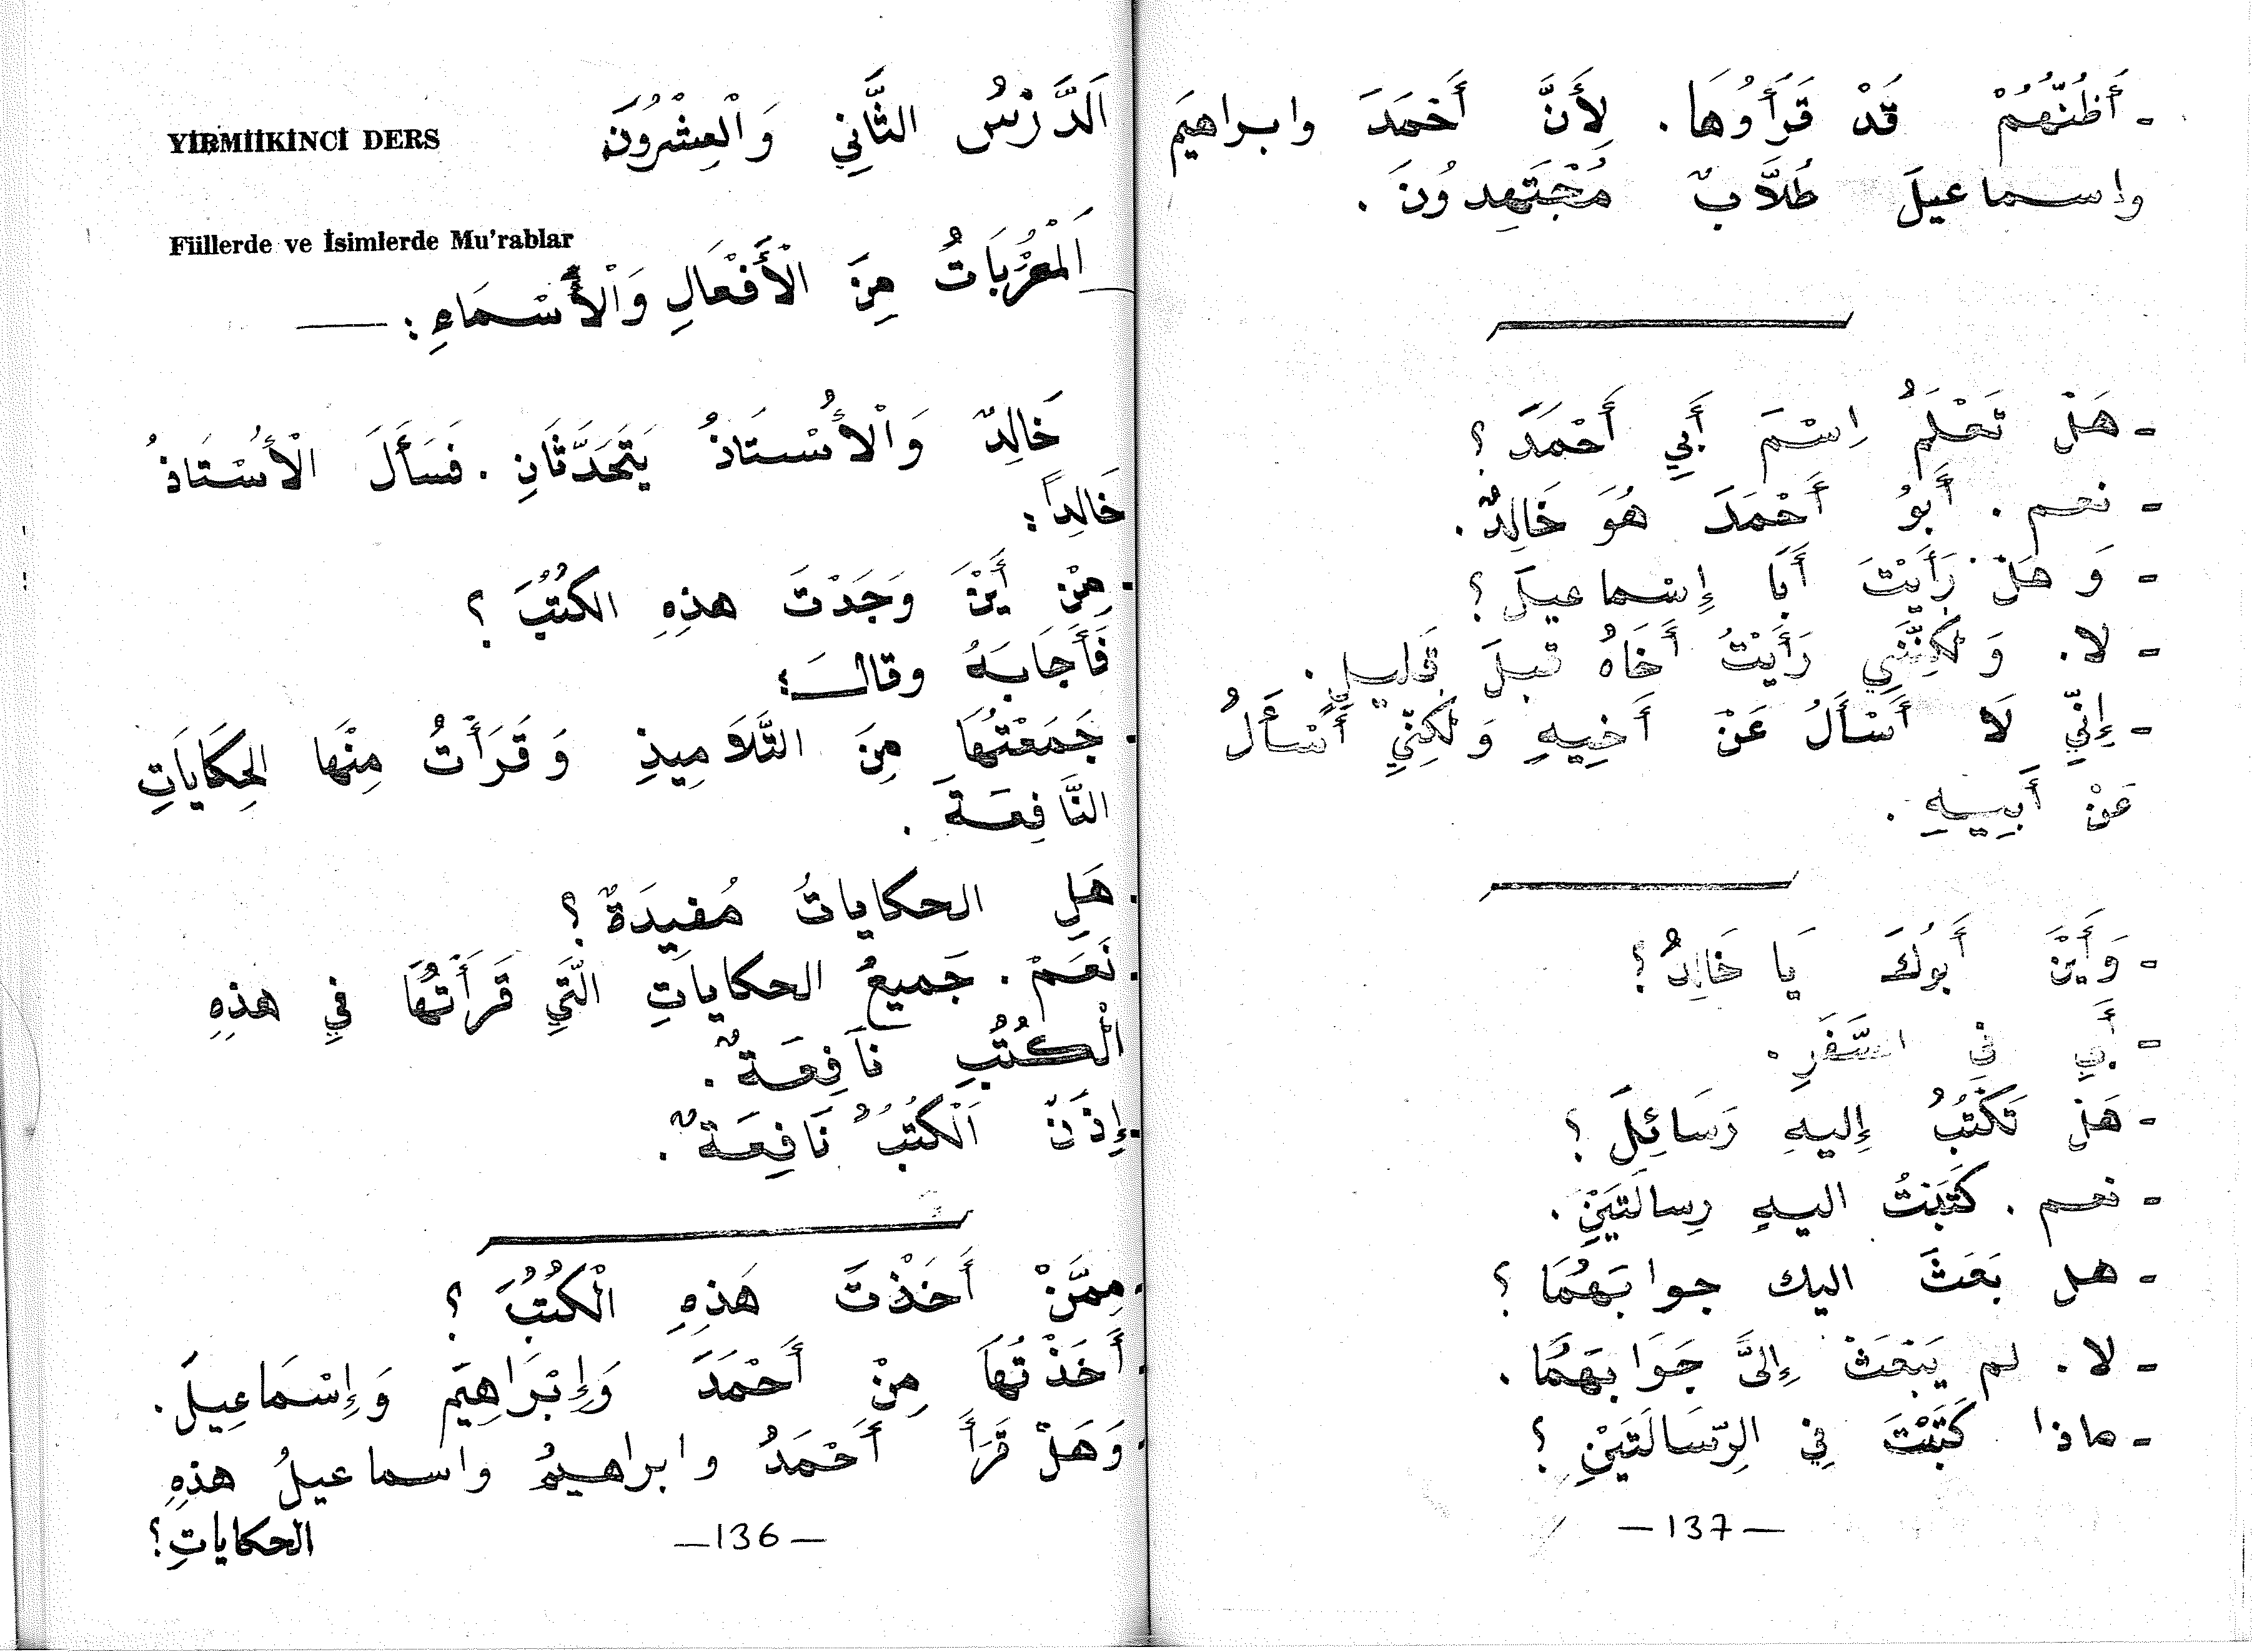 اَلدَّرْسُ الثَّانِي وَالْعِشْرُونَ
YİRMİİKİNCİ DERS
Fiillerde ve İsimlerde Mu'rablar
اَلْمُعْرَبَاتُ مِنَ الْأَفْعَالِ وَالْأَسْمَاءِ : —
خَالِدٌ وَالْأُسْتَاذُ يَتَحَدَّثَانِ . فَسَأَلَ الْأُسْتَاذُ
خَالِداً :
- مِنْ أَيْنَ وَجَدْتَ هذِهِ الكُتُبَ ؟
فَأَجَابَهُ وقالَ :
- جَمَعْتُهَا مِنَ التَّلَامِيذِ وَقَرَأْتُ مِنْها الحِكَايَاتِ
النَّافِعَةَ .
- هَلِ الحكاياتُ مُفيدَةٌ ؟
- نَعَمْ . جَميعُ الحكاياتِ الَّتِي قَرَأْتُهَا فِي هذِهِ
الْكُتُبِ نَافِعَةٌ .
- إِذَنْ اَلْكُتُبُ نَافِعَةٌ .
- مِمَّنْ أَخَذْتَ هَذِهِ الْكُتُبَ ؟
- أَخَذْتُهَا مِنْ أَحْمَدَ وَإِبْرَاهِيمَ وَإِسْمَاعِيلَ .
- وَهَلْ قَرَأَ أَحْمَدُ وابراهيمُ واسماعيلُ هذِهِ
الحكاياتِ ؟
—136—
- أَظُنُّهُمْ قَدْ قَرَأُوهَا . لِأَنَّ أَحْمَدَ وابراهيمَ
وإسماعيلَ طُلَّابٌ مُجْتَهِدُونَ .
- هَلْ تَعْلَمُ اِسْمَ أَبِي أَحْمَدَ ؟
- نعم . أَبُو أَحْمَدَ هُوَ خَالِدٌ .
- وَهَلْ رَأَيْتَ أَبَا إِسْماعيلَ ؟
- لا . وَلكِنَّنِي رَأَيْتُ أَخَاهُ قبلَ قَليلٍ .
- إِنِّي لَا أَسْأَلُ عَنْ أَخِيهِ وَلكِنِّي أَسْأَلُ
عَنْ أَبِيهِ .
- وَأَيْنَ أَبُوكَ يَا خَالِدُ ؟
- أَبِي فِي السَّفَرِ .
- هَلْ تَكْتُبُ إِليهِ رَسَائِلَ ؟
- نعم . كَتَبْتُ اليهِ رِسالَتَيْنِ .
- هل بَعَثَ اليك جوابَهُمَا ؟
- لا . لم يَبْعَثْ إِلىَّ جَوَابَهُمَا .
- ماذا كَتَبْتَ فِي الرِّسَالَتَيْنِ ؟
—137—